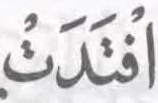 افْتَدَتْ